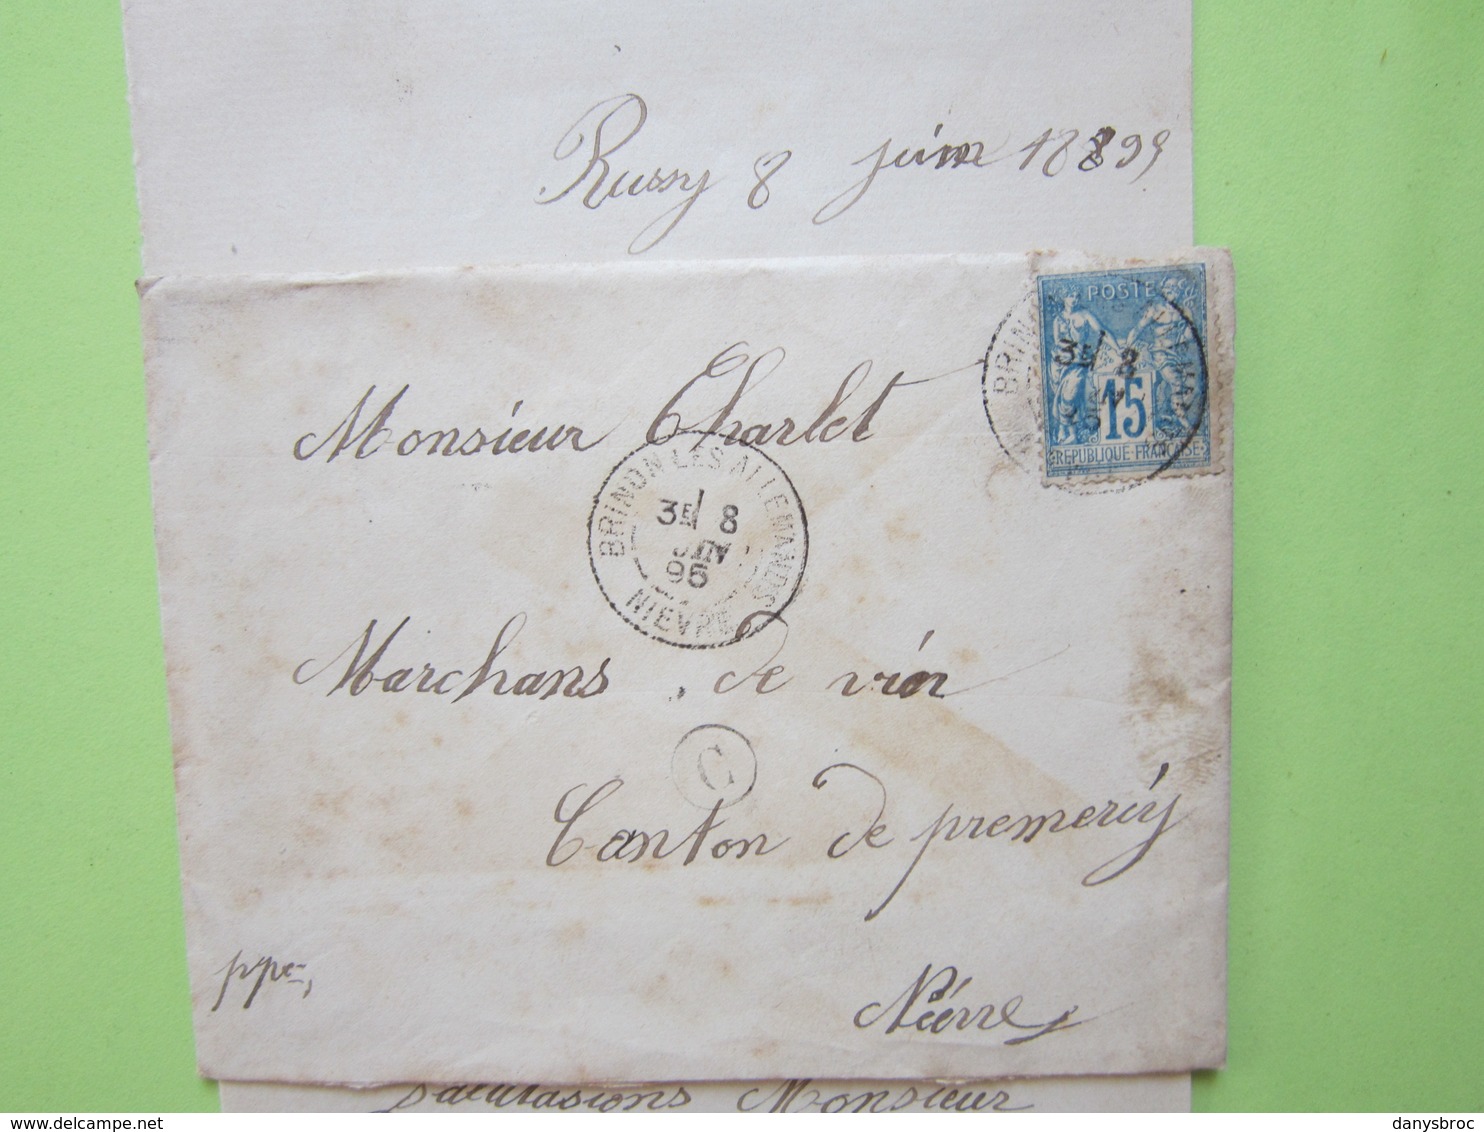 Russy 8 juin 18895
POSTE
15
REPUBLIQUE FRANÇAISE
Monsieur Charlet
BRINON LES ALLEMANDS
3E 8
JUIN
95
NIEVRE
Marchans de vin
C
Canton de premeriy
ppe,
Niévre
salutasions Monsieur
danysbroc